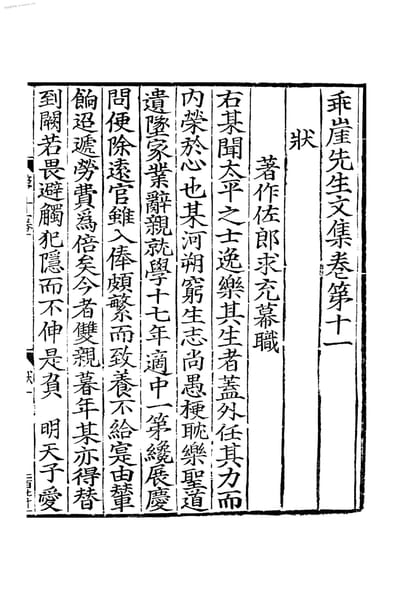 乖崖先生文集卷第十一
狀
著作佐郎求充幕職
右某聞太平之士逸樂其生者蓋外任其力而
内榮於心也某河朔窮生志尚愚梗耽樂聖道
遺墜家業辭親就學十七年適中一第纔展慶
問便除遠官雖入俸頗繁而致養不給寔由輦
餉迢遞勞費爲倍矣今者雙親暮年某亦得替
到闕若畏避觸犯隱而不伸是負 明天子愛